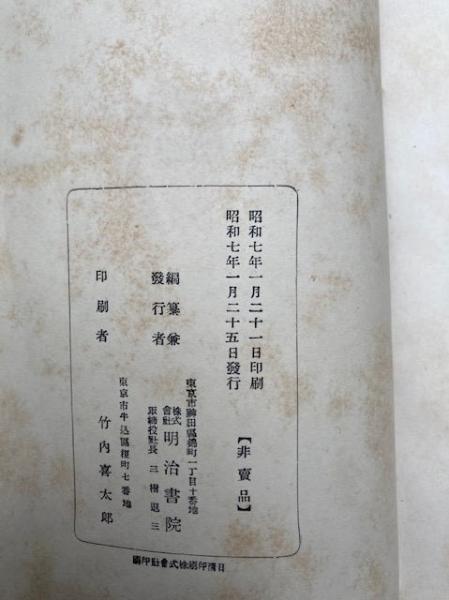 昭和七年一月二十一日印刷
昭和七年一月二十五日發行
【非賣品】
編纂兼
發行者
東京市神田區錦町一丁目十番地
株式會社 明治書院
取締役社長 三樹退三
印刷者
東京市牛込區榎町七番地
竹内喜太郎
日清印刷株式會社印刷